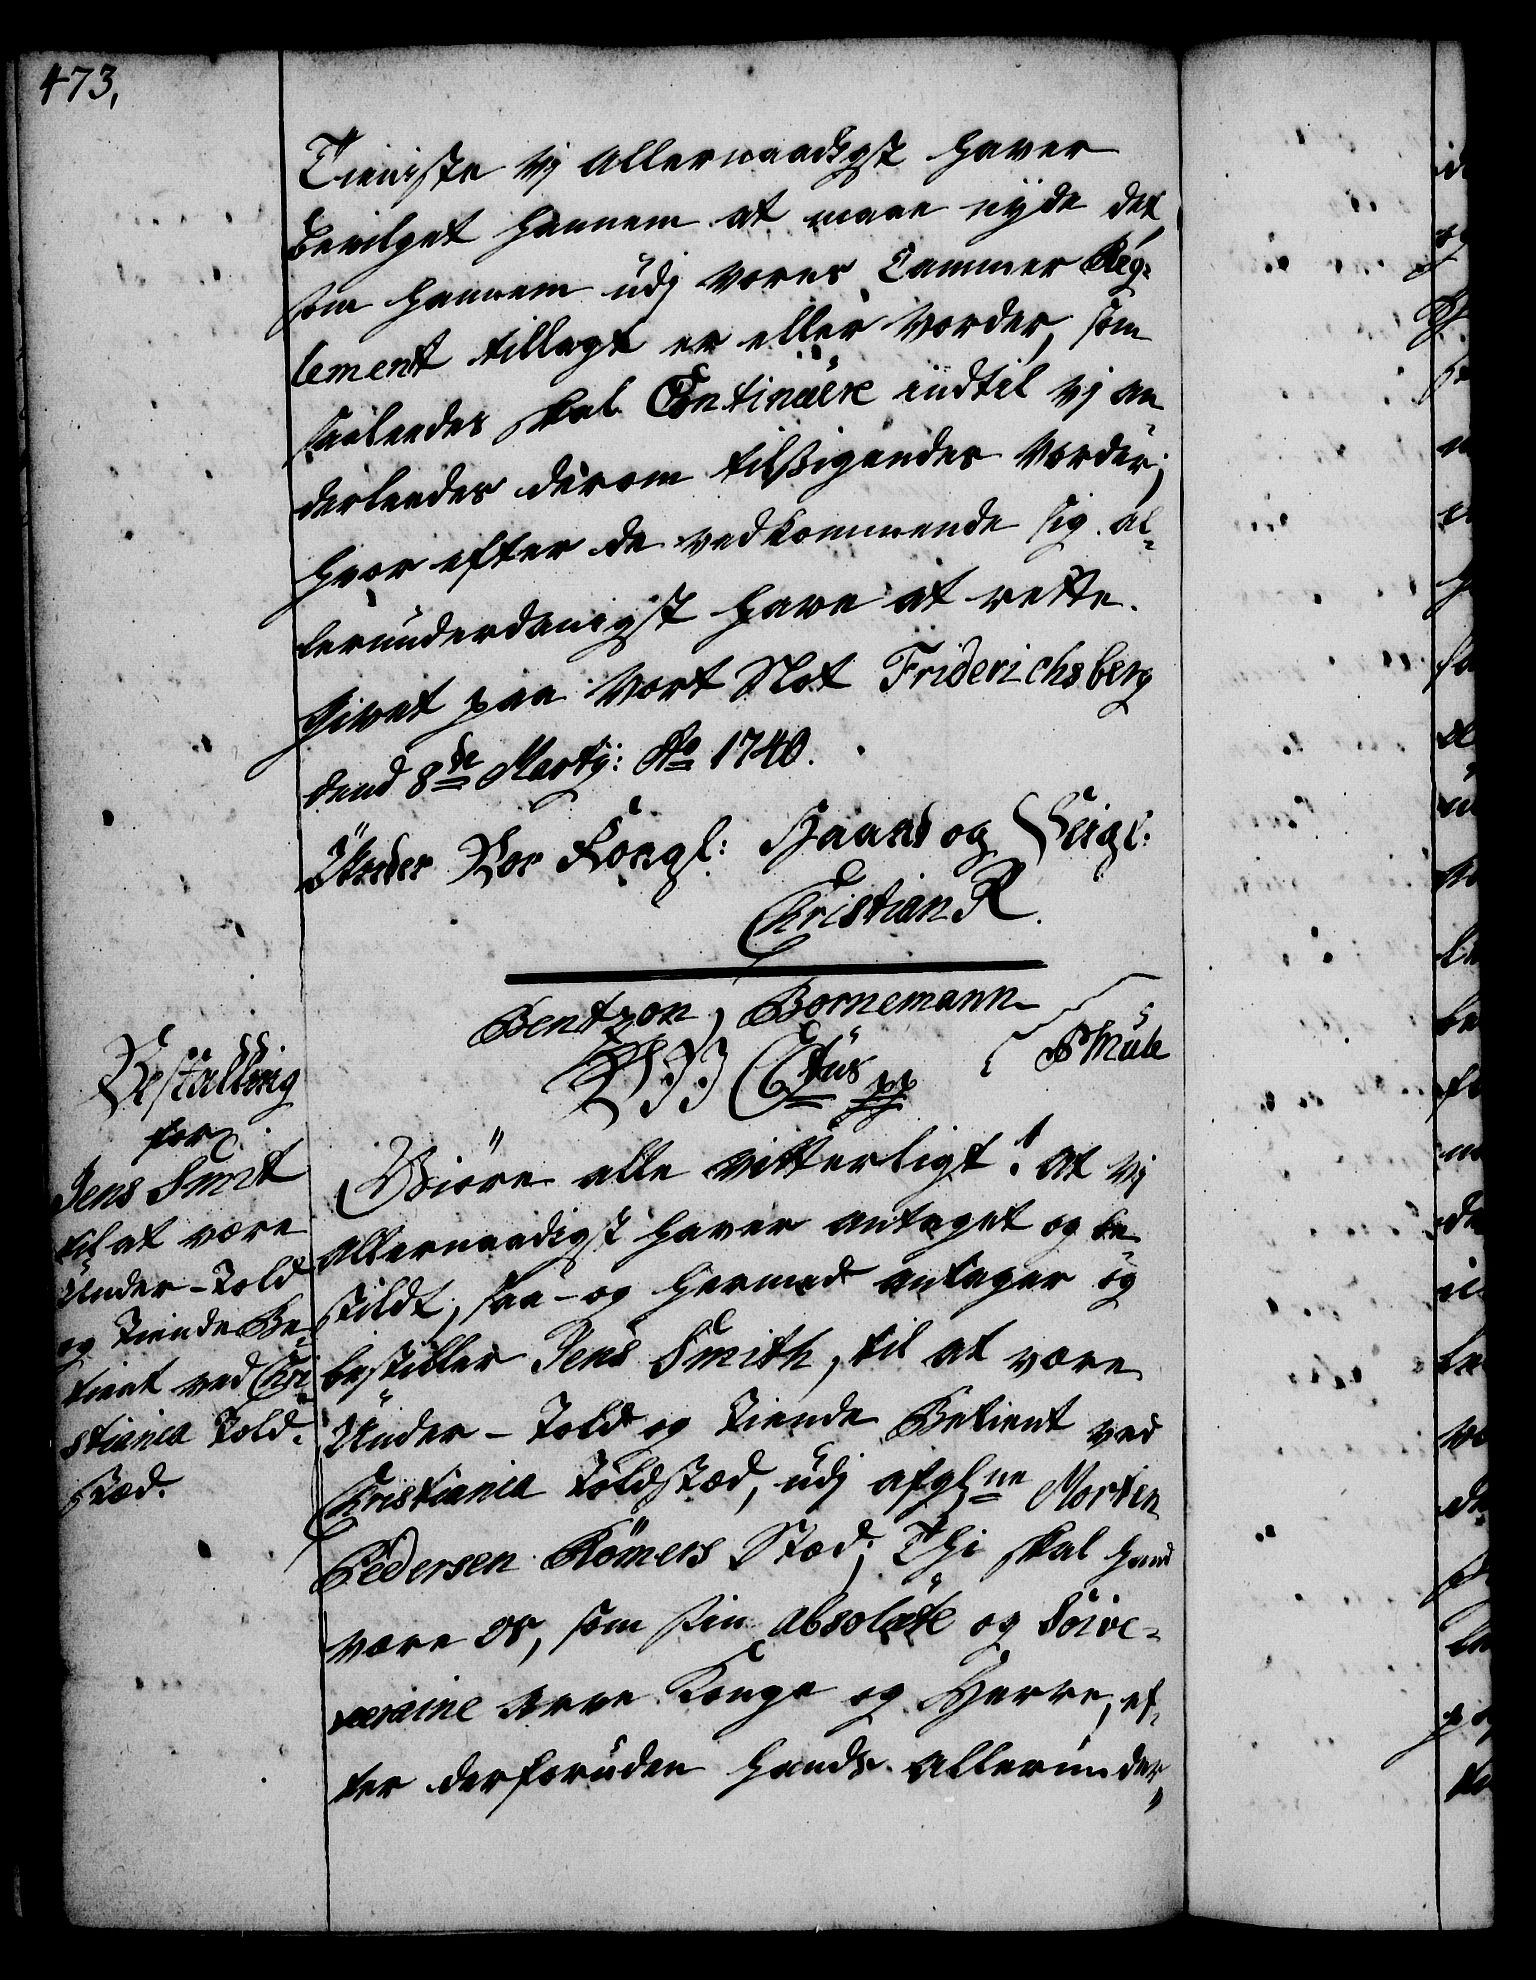 473,
Tieniste Vj Allernaadigst haver
bevilget hannem at maae nyde det
som hannem udj Vores Cammer Reg-
lement tillagt er eller Vorder, som
saaledes skal Continuere indtil Vj an-
derleedes derom tilsigendes Vorder;
hvor efter de vedkommende sig al-
lerunderdanigst have at rette.
Givet paa Vort Slot Friderichsberg
dend 8de Martij: Ao 1740.
Under Vor Kongl: Haand og Seigl:
Christian R.
Bentzon, Bornemann
PMule
Ctus pp
Bestalling
for
Jens Smit
til at være
Under-Told
og Tiende Be-
tient ved Chri-
stiania Told-
stæd.
Giöre alle vitterligt! At Vj
Allernaadigst haver antaget og be-
stildt, saa- og hermed antager og
bestiller Jens Smith, til at være
Under-Told og Tiende Betient ved
Christiania Toldstæd, udj afglne Morten
Pedersen Römers Stæd; Thi skal hand
være os, som sin absolute og Souve-
raine Arve Konge og Herre, ef-
ter derforuden hands Allerunder-